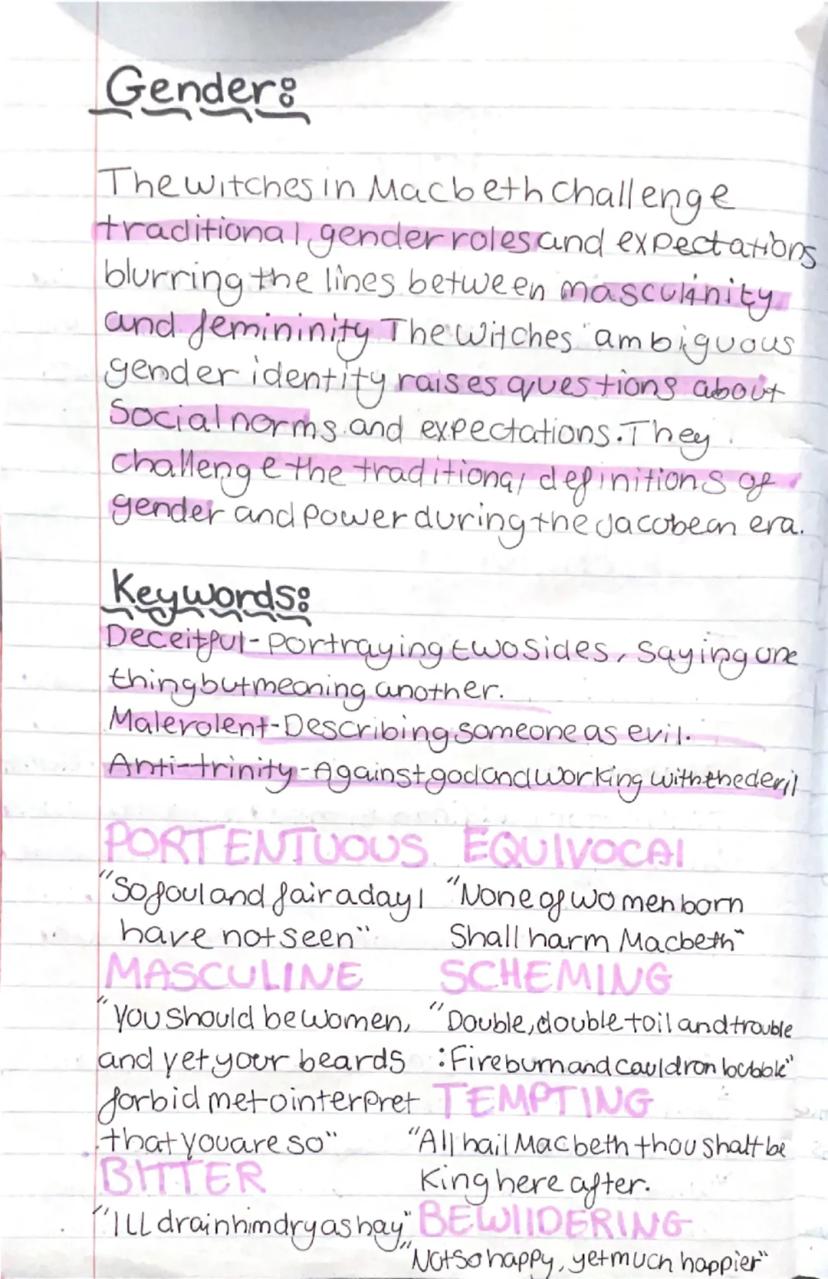 Gender:
The witches in Macbeth challenge
traditional gender roles and expectations
blurring the lines between masculinity
and femininity The witches ambiguous
gender identity raises questions about
Social norms and expectations. They
challenge the traditional definitions of
gender and power during the Jacobean era.
Keywords:
Deceitful - Portraying two sides, saying one
thing but meaning another.
Malevolent - Describing someone as evil.
Anti-trinity - Against god and working with the devil
PORTENTUOUS
"So foul and fair a day I
have not seen"
EQUIVOCAl
"None of women born
Shall harm Macbeth"
MASCULINE
"You should be women,
and yet your beards
forbid me to interpret
that you are so"
SCHEMING
"Double, double toil and trouble
: Fire burn and cauldron bubble"
TEMPTING
"All hail Macbeth thou shalt be
King here after.
BITTER
"I LL drain him dry as hay"
BEWIlDERING
"Not so happy, yet much happier"